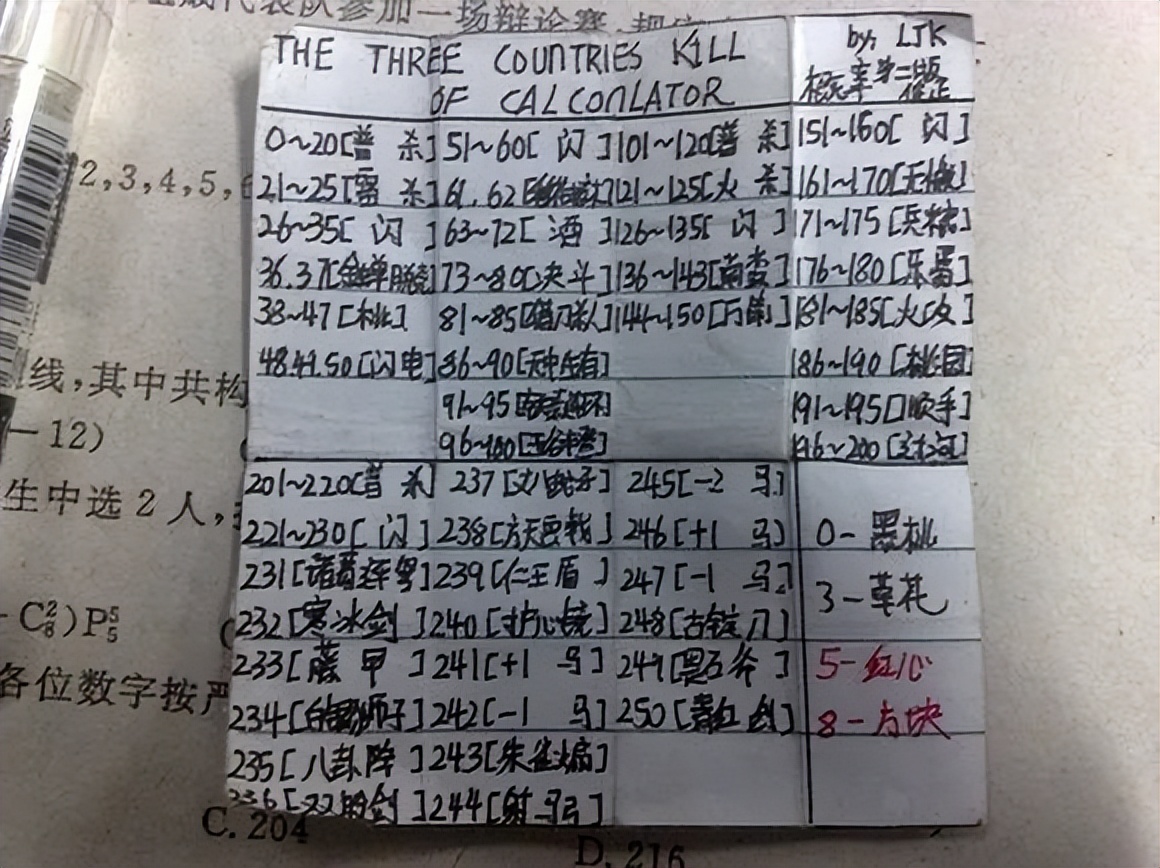 代表队参加一场辩论赛
THE THREE COUNTRIES KILL
OF CALCOULATOR
by, LJK
概率第二版
修正
0~20[普 杀]
21~25[雷 杀]
26~35[ 闪 ]
36.37[金蝉脱壳]
38~47[桃]
48.49.50[闪电]
51~60[ 闪 ]
61.62
63~72[ 酒 ]
73~80[决斗]
81~85[借刀杀人]
86~90[无中生有]
91~95[铁索连环]
96~100[五谷丰登]
101~120[普 杀]
121~125[火 杀]
126~135[ 闪 ]
136~143[南蛮]
144~150[万箭]
151~160[ 闪 ]
161~170[无懈]
171~175[兵粮]
176~180[乐蜀]
181~185[火攻]
186~190[桃园]
191~195[顺手]
196~200[过河]
201~220[普 杀]
221~230[ 闪 ]
231[诸葛连弩]
232[寒冰剑]
233[藤 甲]
234[白银狮子]
235[八卦阵]
236[双股剑]
237[丈八蛇矛]
238[方天画戟]
239[仁王盾]
240[护心镜]
241[+1 马]
242[-1 马]
243[朱雀扇]
244[射马弓]
245[-2 马]
246[+1 马]
247[-1 马]
248[古锭刀]
249[贯石斧]
250[青釭剑]
0-黑桃
3-草花
5-红心
8-方块
2,3,4,5,6
线,其中共构
-12)
生中选2人,
-C²₈)P⁵₅
各位数字按严
C. 204
D. 216